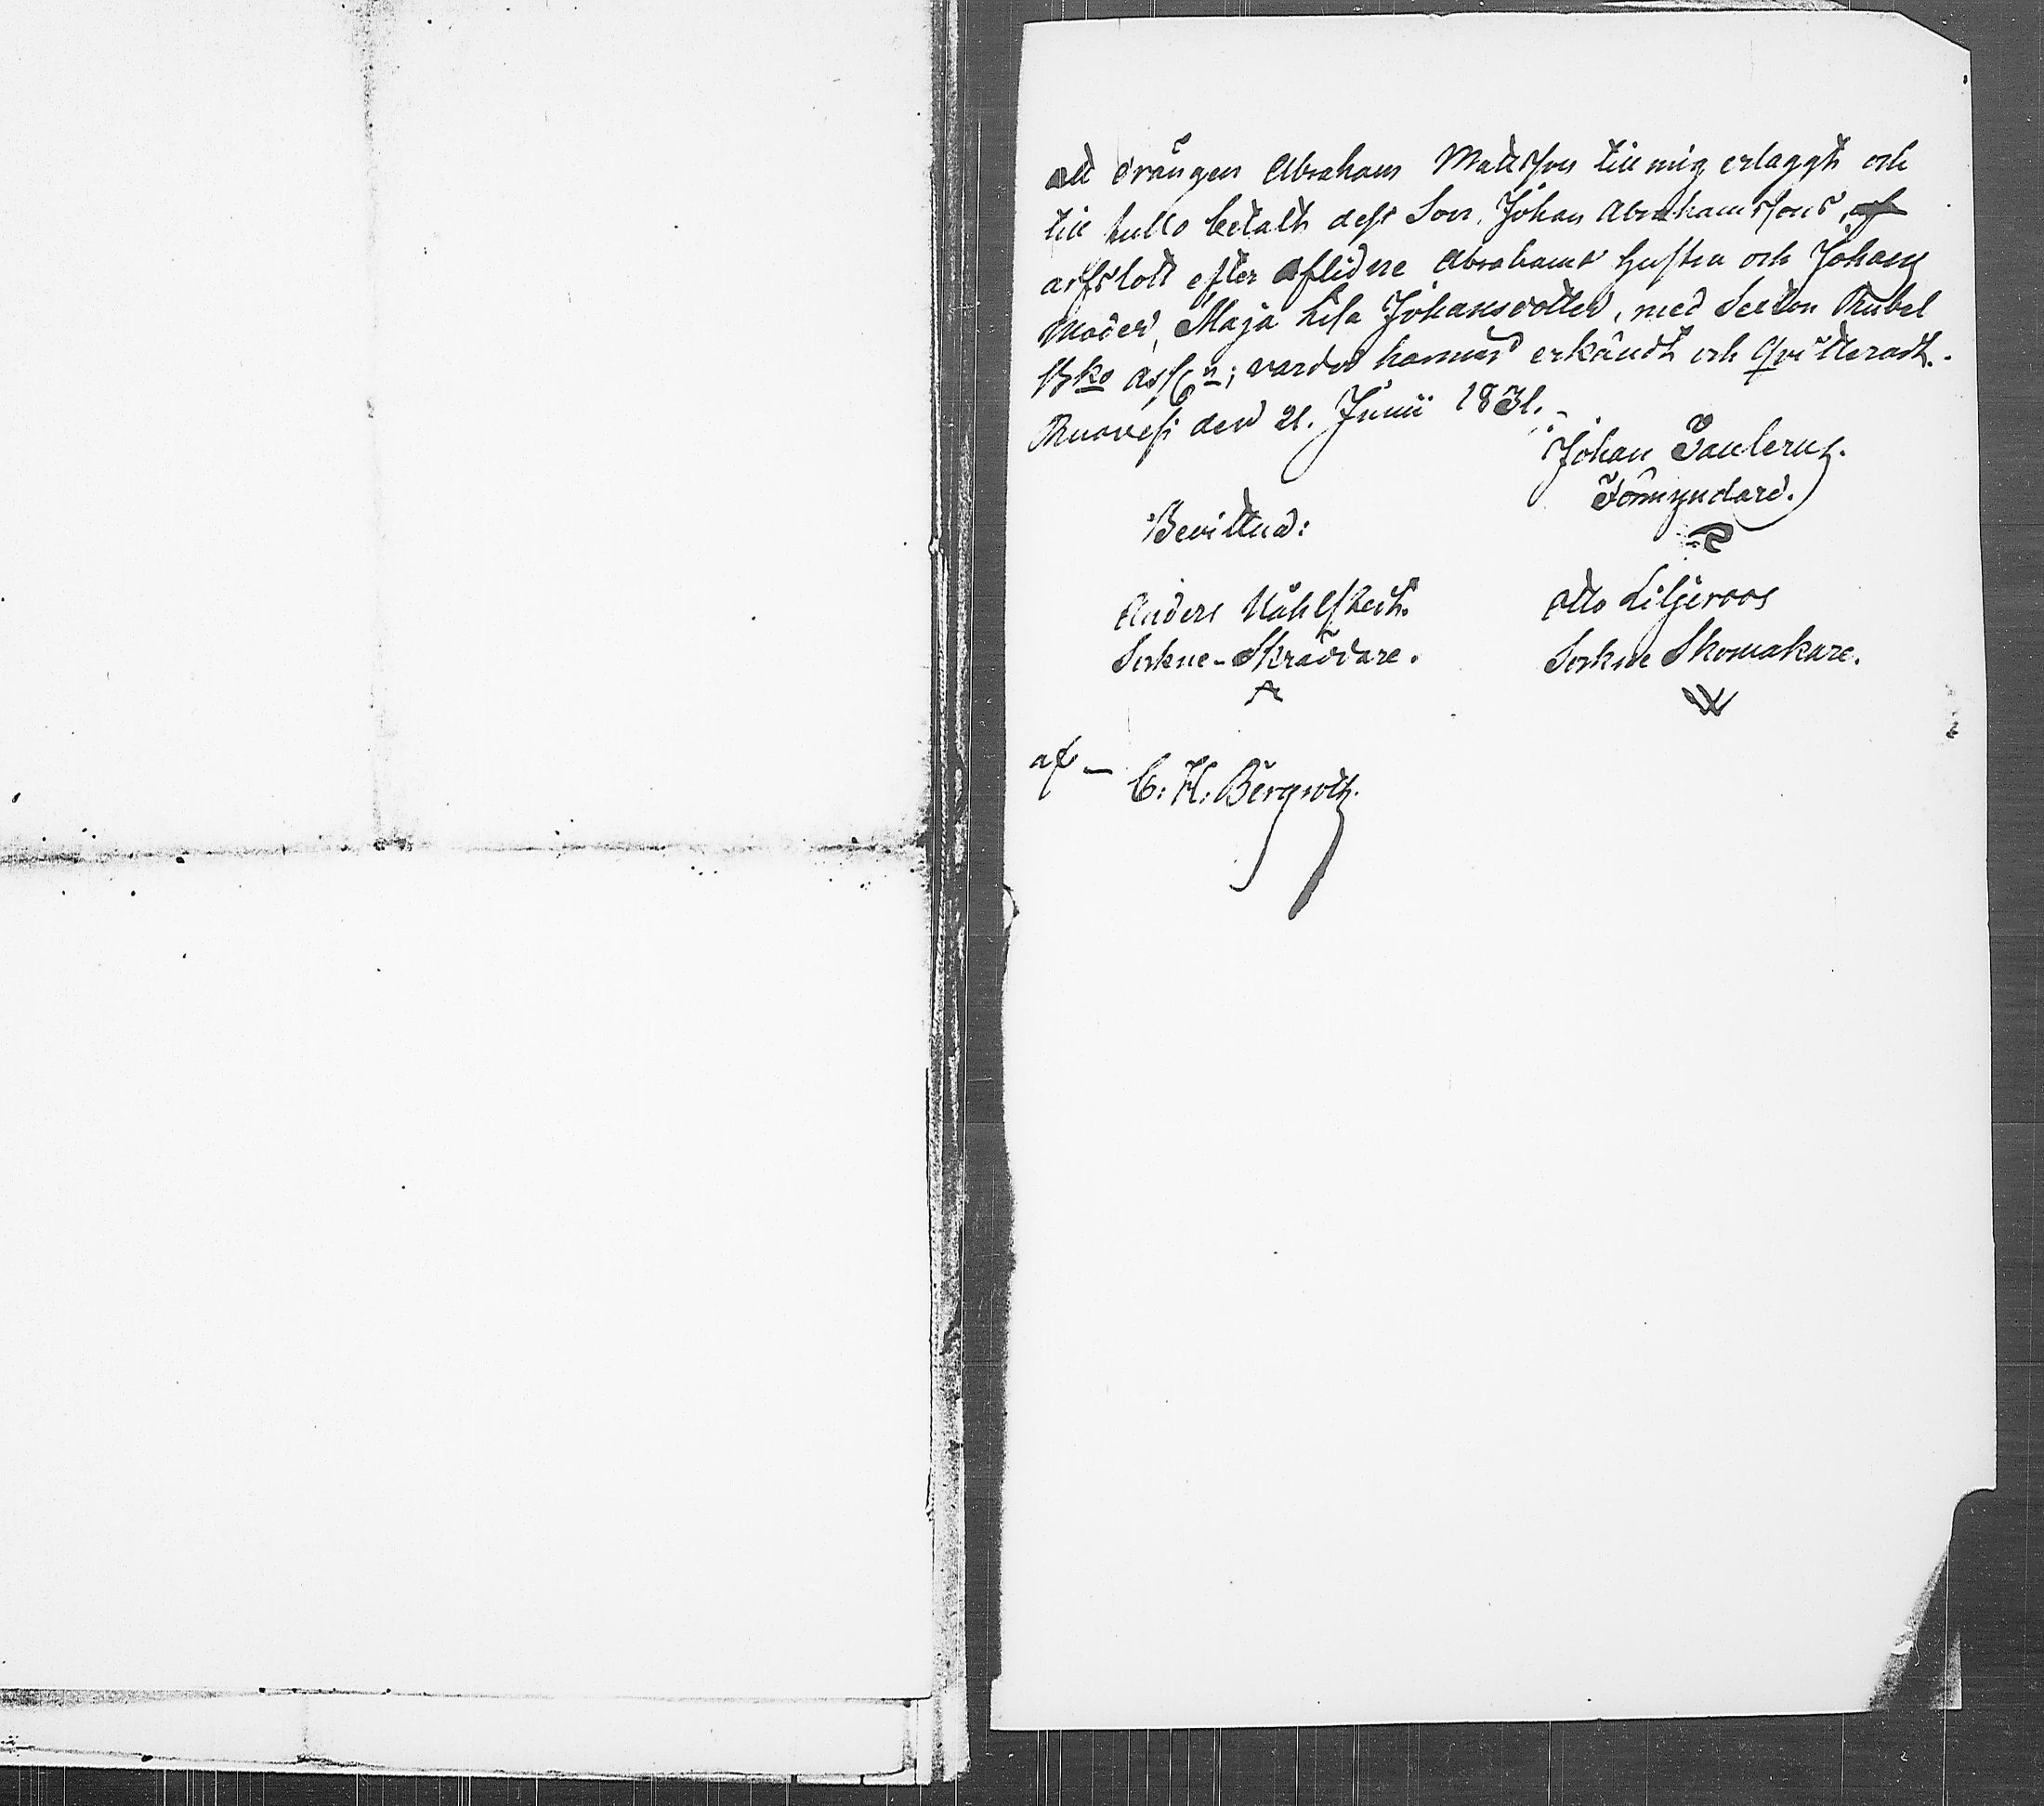 att drängen Abraham Mattsson till mig erlaggt och
till fullo betalt dess Son, Johan Abrahamssons,
arfslott efter aflidne Abrahams hustru och Johans
Moder, Maja Lisa Johansdotter, med Sexton Rubel
Bko Assn; varder härmed erkändt och qvitteradt.
Ruovesi den 21. Junii 1831.
Johan Saulerus.
Förmyndare.
Bevittna:
Anders
Otto Liljeroos
Sockne-Skräddare.
Sockne Skomakare.
af C. H. Bergroth.